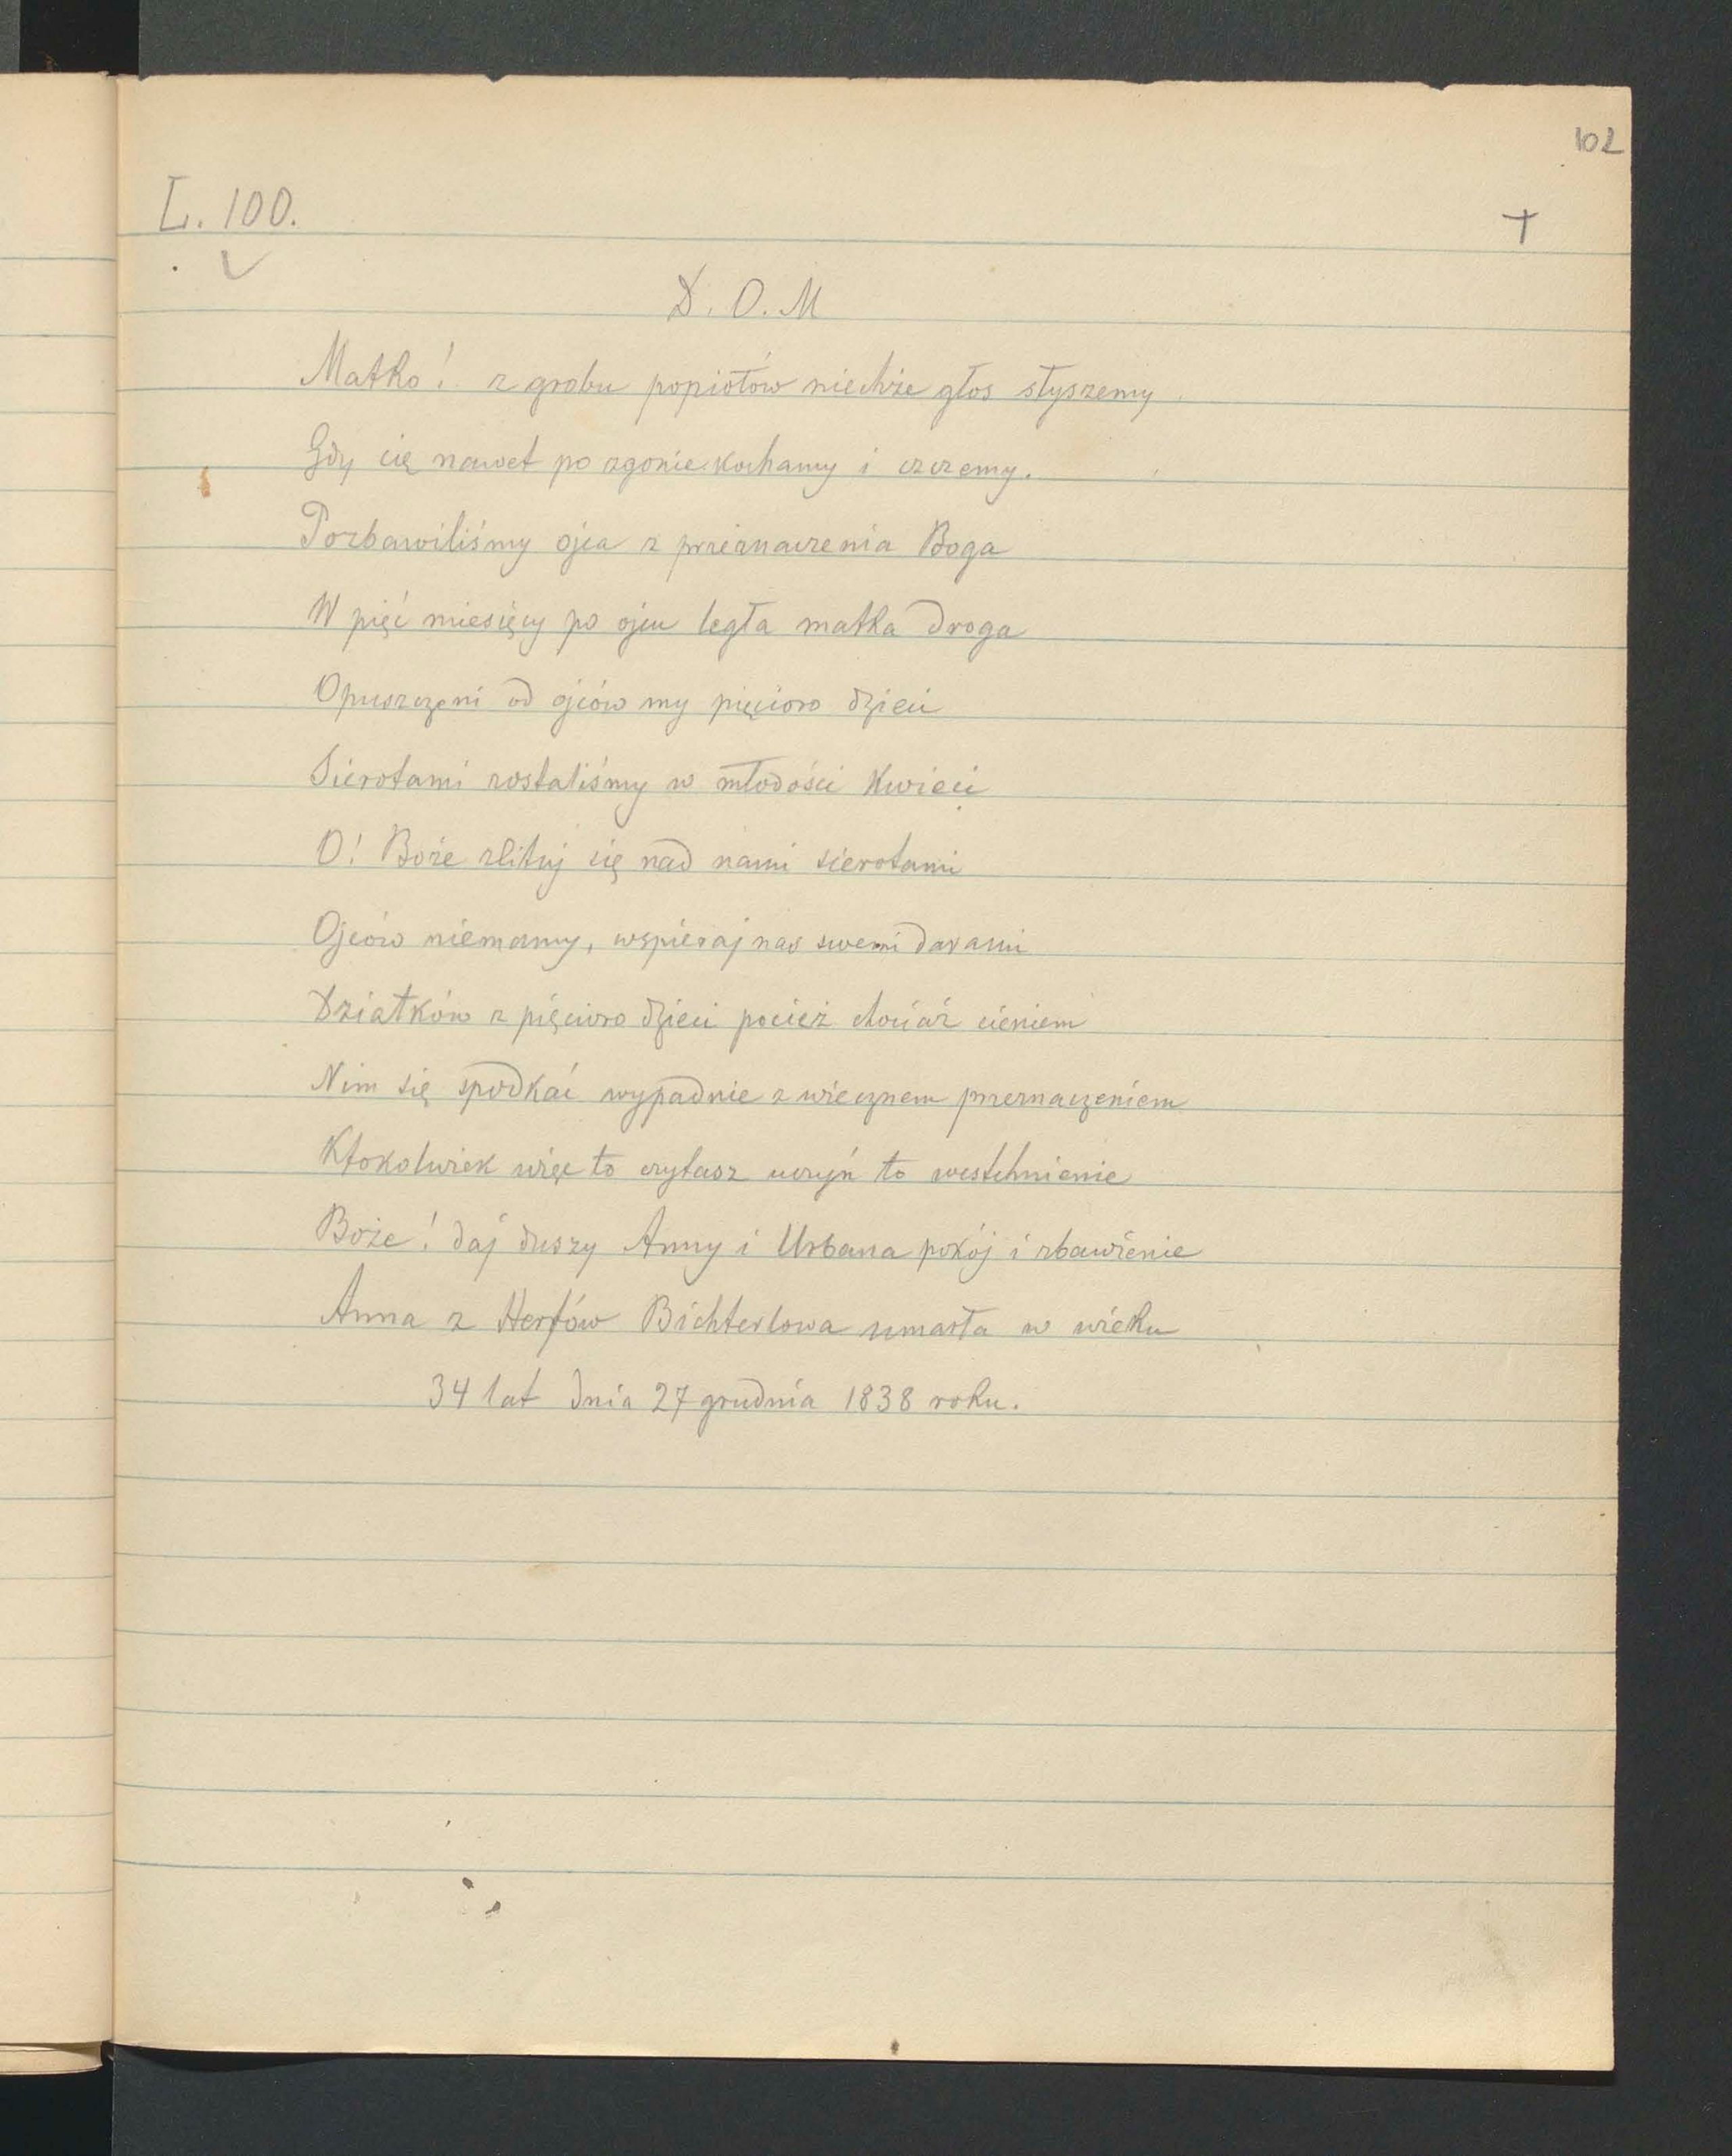 102
L. 100.
+
D. O. M
Matko! z grobu popiołów niechże głos słyszemy
Gdy cię nawet po zgonie kochamy i czczemy.
Pozbawiliśmy ojca z przeznaczenia Boga
W pięć miesięcy po ojcu legła matka droga
Opuszczeni od ojców my pięcioro dzieci
Sierotami zostaliśmy w młodości kwieci
O! Boże zlituj się nad nami sierotami
Ojców niemamy, wspieraj nas swemi darami
Dziatków z pięcioro dzieci pociesz chociaż cieniem
Nim się spodkać wypadnie z wiecznem przeznaczeniem
Ktokolwiek więc to czytasz uczyń to westchnienie
Boże! daj duszy Anny i Urbana pokój i zbawienie
Anna z Herfów Bichterlowa umarła w wieku
34 lat dnia 27 grudnia 1838 roku.